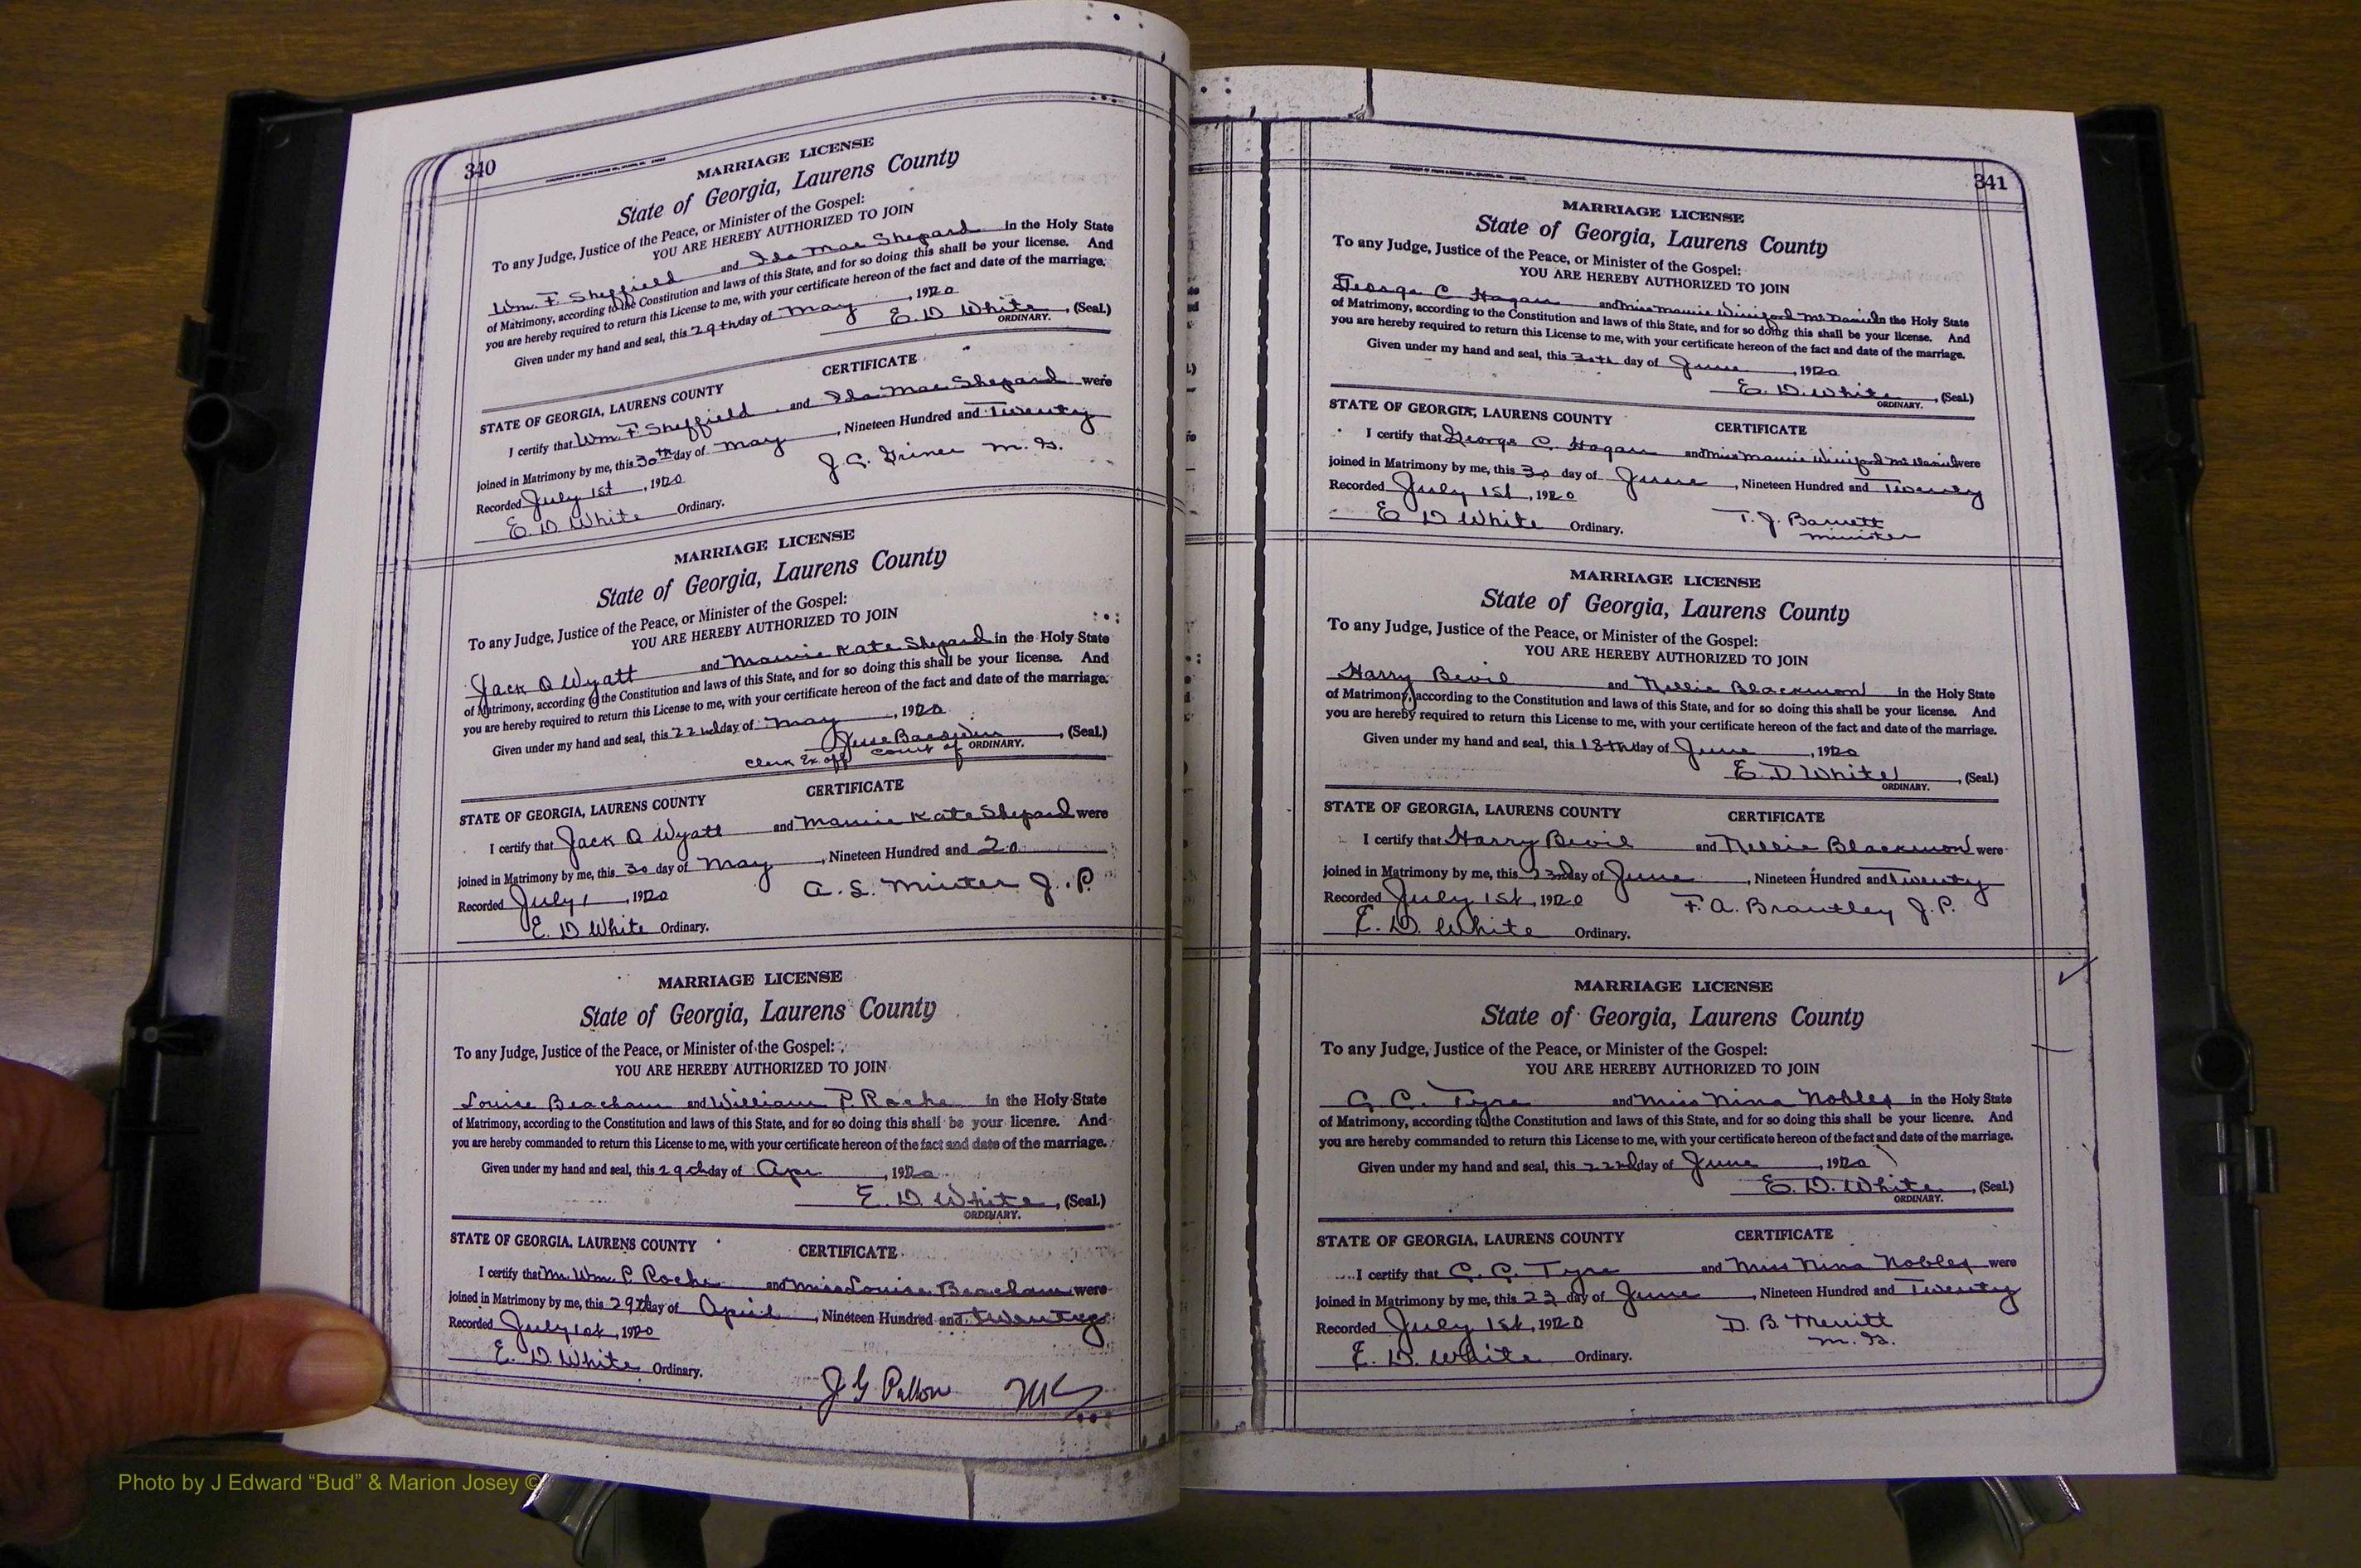 340
MARRIAGE LICENSE
State of Georgia, Laurens County
To any Judge, Justice of the Peace, or Minister of the Gospel:
YOU ARE HEREBY AUTHORIZED TO JOIN
Wm. F. Sheffield and Ida Mae Shepard in the Holy State
of Matrimony, according to the Constitution and laws of this State, and for so doing this shall be your license. And
you are hereby required to return this License to me, with your certificate hereon of the fact and date of the marriage.
Given under my hand and seal, this 29th day of May, 1920
E. D. White, (Seal.)
ORDINARY.
STATE OF GEORGIA, LAURENS COUNTY CERTIFICATE
I certify that Wm. F. Sheffield and Ida Mae Shepard were
joined in Matrimony by me, this 30th day of May, Nineteen Hundred and Twenty
Recorded July 1st, 1920 J. C. Griner M. G.
E. D. White Ordinary.
MARRIAGE LICENSE
State of Georgia, Laurens County
To any Judge, Justice of the Peace, or Minister of the Gospel:
YOU ARE HEREBY AUTHORIZED TO JOIN
Jack O Wyatt and Mamie Kate Shepard in the Holy State
of Matrimony, according to the Constitution and laws of this State, and for so doing this shall be your license. And
you are hereby required to return this License to me, with your certificate hereon of the fact and date of the marriage.
Given under my hand and seal, this 22nd day of May, 1920
Jesse, (Seal.)
Clerk Ex off Court of ORDINARY.
STATE OF GEORGIA, LAURENS COUNTY CERTIFICATE
I certify that Jack O Wyatt and Mamie Kate Shepard were
joined in Matrimony by me, this 30 day of May, Nineteen Hundred and 20
Recorded July 1, 1920 A. S. Minter J. P.
E. D White Ordinary.
MARRIAGE LICENSE
State of Georgia, Laurens County
To any Judge, Justice of the Peace, or Minister of the Gospel:
YOU ARE HEREBY AUTHORIZED TO JOIN
Louise Beacham and William P. Roche in the Holy State
of Matrimony, according to the Constitution and laws of this State, and for so doing this shall be your license. And
you are hereby commanded to return this License to me, with your certificate hereon of the fact and date of the marriage.
Given under my hand and seal, this 29th day of Apr, 1920
E. D. White, (Seal.)
ORDINARY.
STATE OF GEORGIA, LAURENS COUNTY CERTIFICATE
I certify that Mr Wm. P. Roche and Miss Louise Beacham were
joined in Matrimony by me, this 29th day of April, Nineteen Hundred and twenty
Recorded July 1st, 1920
E. D. White Ordinary.
J G
341
MARRIAGE LICENSE
State of Georgia, Laurens County
To any Judge, Justice of the Peace, or Minister of the Gospel:
YOU ARE HEREBY AUTHORIZED TO JOIN
George C Hagan and Miss Mamie Winifred McDaniel in the Holy State
of Matrimony, according to the Constitution and laws of this State, and for so doing this shall be your license. And
you are hereby required to return this License to me, with your certificate hereon of the fact and date of the marriage.
Given under my hand and seal, this 30th day of June, 1920
E. D. White, (Seal.)
ORDINARY.
STATE OF GEORGIA, LAURENS COUNTY CERTIFICATE
I certify that George C. Hagan and Miss Mamie Winifred McDaniel were
joined in Matrimony by me, this 30 day of June, Nineteen Hundred and Twenty
Recorded July 1st, 1920 T. J. Barrett
E D White Ordinary. Minister
MARRIAGE LICENSE
State of Georgia, Laurens County
To any Judge, Justice of the Peace, or Minister of the Gospel:
YOU ARE HEREBY AUTHORIZED TO JOIN
Harry Bevil and Nellie Blackmon in the Holy State
of Matrimony, according to the Constitution and laws of this State, and for so doing this shall be your license. And
you are hereby required to return this License to me, with your certificate hereon of the fact and date of the marriage.
Given under my hand and seal, this 18th day of June, 1920
E. D White, (Seal.)
ORDINARY.
STATE OF GEORGIA, LAURENS COUNTY CERTIFICATE
I certify that Harry Bevil and Nellie Blackmon were
joined in Matrimony by me, this 23rd day of June, Nineteen Hundred and Twenty
Recorded July 1st, 1920 F. A. Brantley J. P.
E. D. White Ordinary.
MARRIAGE LICENSE
State of Georgia, Laurens County
To any Judge, Justice of the Peace, or Minister of the Gospel:
YOU ARE HEREBY AUTHORIZED TO JOIN
C. C. Tyre and Miss Nina Nobles in the Holy State
of Matrimony, according to the Constitution and laws of this State, and for so doing this shall be your license. And
you are hereby commanded to return this License to me, with your certificate hereon of the fact and date of the marriage.
Given under my hand and seal, this 22nd day of June, 1920
E. D. White, (Seal.)
ORDINARY.
STATE OF GEORGIA, LAURENS COUNTY CERTIFICATE
I certify that C. C. Tyre and Miss Nina Nobles were
joined in Matrimony by me, this 23 day of June, Nineteen Hundred and Twenty
Recorded July 1st, 1920 D. B. Merritt
E. D. White Ordinary. M. G.
Photo by J Edward “Bud” & Marion Josey ©